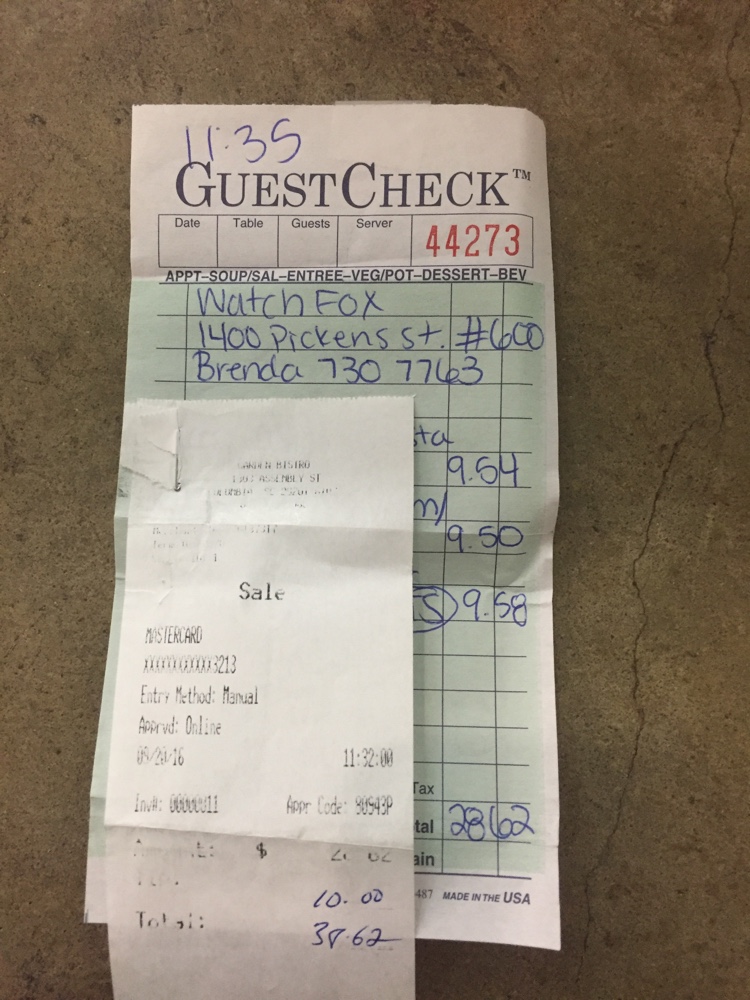 11:35
GUESTCHECK™
Date Table Guests Server 44273
APPT–SOUP/SAL–ENTREE–VEG/POT–DESSERT–BEV
Watch Fox
1400 Pickens St. #600
Brenda 730 7763
sta
9.54
m/
9.50
9.58
Tax
tal 28.62
ain
487 MADE IN THE USA
GARDEN BISTRO
ASSEMBLY ST
Sale
MASTERCARD
XXXXXXXXXXXX3213
Entry Method: Manual
Apprvd: Online
09/20/16 11:32:00
Inv#: 00000011 Appr Code: 80943P
$
10.00
Total: 38.62